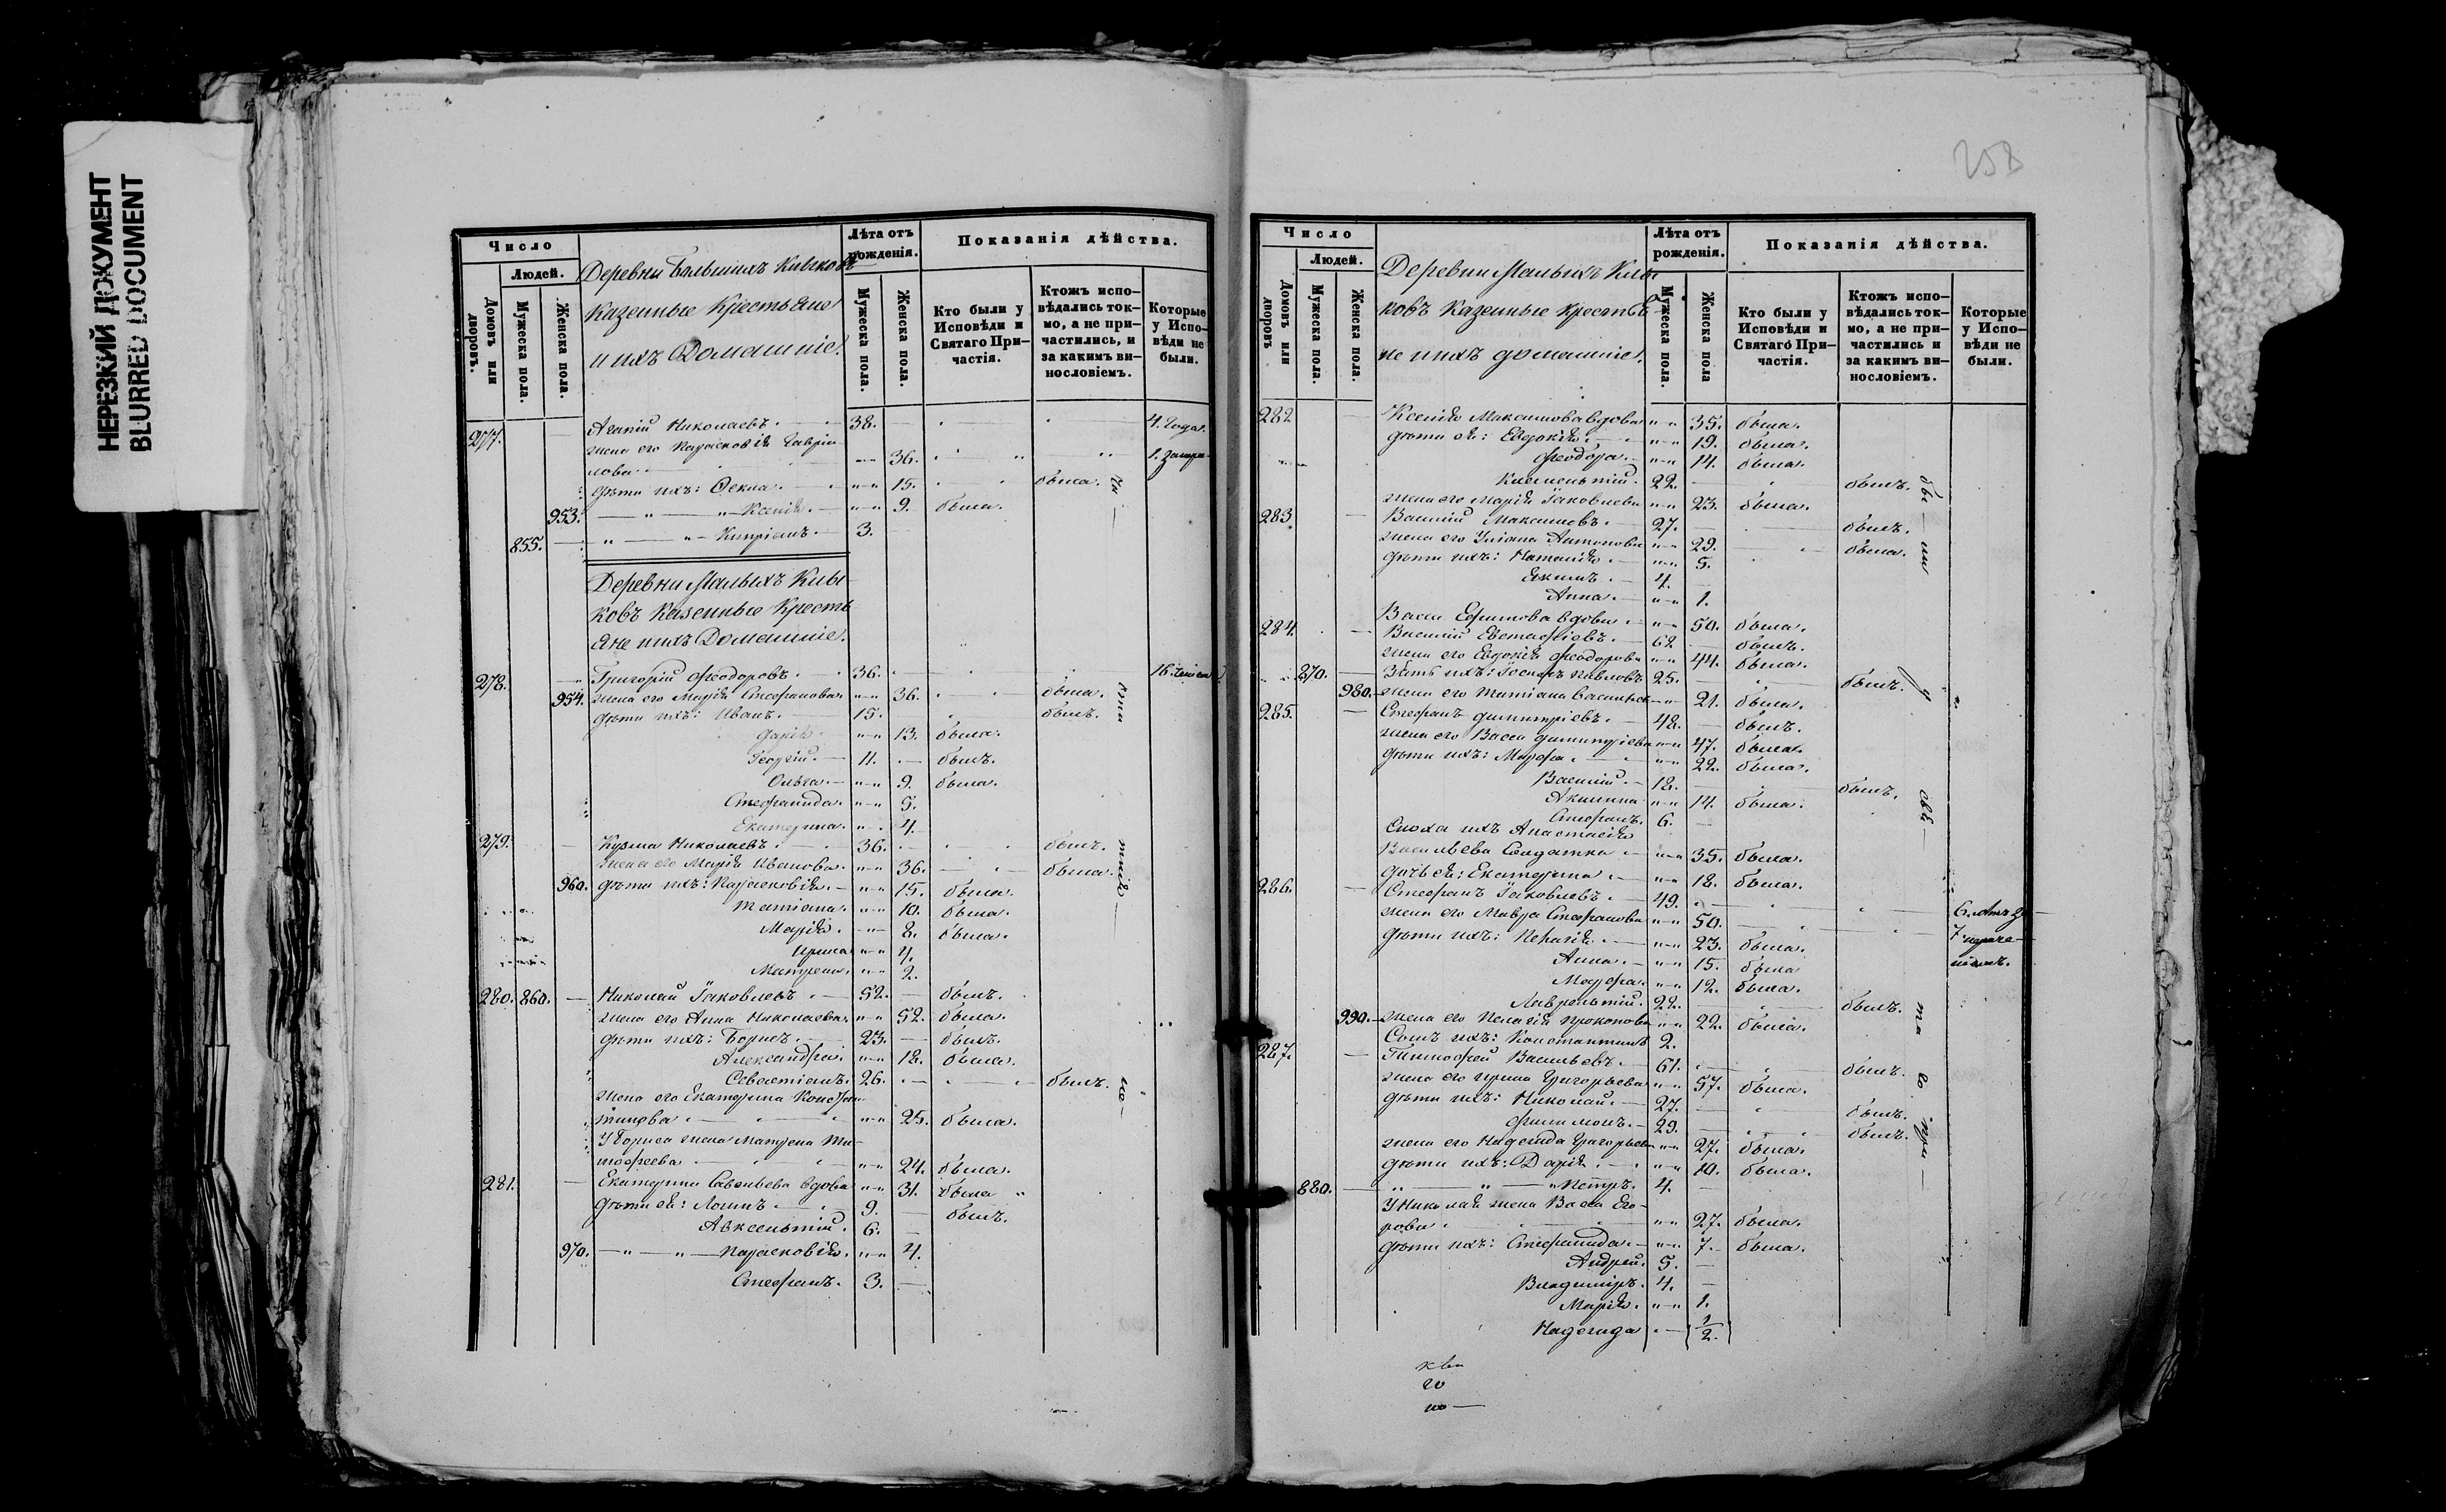 НЕРЕЗКИЙ ДОКУМЕНТ
BLURRED DOCUMENT
Число
Людей.
Домовъ или дворовъ.
Мужеска пола.
Женска пола.
Деревни Большихъ Кивиковъ
казенные Крестьяне
и ихъ Домашніе.
Лѣта отъ рожденія.
Мужеска пола.
Женска пола.
Показанія дѣйства.
Кто были у Исповѣди и Святаго При-частія.
Ктожъ испо-вѣдались ток-мо, а не при-частились, и за какимъ ви-нословіемъ.
Которые у Испо-вѣди не были.
277. Агапій Николаевъ. 38. 4. года.
жена его Парасковія Гаврі-
лова 36.
дѣти ихъ: Ѳекла. 15. была.
953. Ксенія. 9. была.
855. Кипріанъ. 3.
Деревни Малыхъ Киви-
ковъ Казенные Кресть
яне и ихъ Домашніе.
278. Григорій Ѳеодоровъ. 36.
954. жена его Марія Стефанова 36. была.
дѣти ихъ: Иванъ. 15. былъ.
Дарія. 13. была.
Георгій. 11. былъ.
Ольга. 9. была.
Стефанида. 5.
Екатерина. 4.
279. Кузма Николаевъ. 36. былъ.
жена его Марія Иванова. 36. была.
960. дѣти ихъ: Парасковія. 15. была.
Татіана. 10. была.
Марія. 8. была.
Ирина 4.
Матрена. 2.
280. 860. Николай Іаковлевъ 52. былъ.
жена его Анна Николаева. 52. была.
дѣти ихъ: Борисъ. 23. былъ.
Александра. 18. была.
Севастіанъ. 26. былъ.
жена его Екатерина Констан-
тинова 25. была.
У Бориса жена Матрена Ти-
моѳеева 24. была.
281. Екатерина Савельева вдова 31. была
дѣти ея: Логинъ 9. былъ.
Авксентій. 6.
970. Парасковія. 4.
Стефанъ. 3.
Число
Людей.
Домовъ или дворовъ
Мужеска пола.
Женска пола.
Деревни Малыхъ Киви
ковъ Казенные Крестья
не и ихъ домашніе.
Лѣта отъ рожденія.
Мужеска пола.
Женска пола
Показанія дѣйства.
Кто были у Исповѣди и Святаго При-частія.
Ктожъ испо-вѣдались ток-мо, а не при-частились и за какимъ ви-нословіемъ.
Которые у Испо-вѣди не были.
282 Ксенія Максимова вдова 35. была.
дѣти ея: Евдокія. 19. была.
Ѳеодора. 14. была.
Климентій. 22. былъ.
жена его Марія Іаковлева 23. была.
283. Василій Максимовъ. 27. былъ.
жена его Уліана Антонова 29. была.
дѣти ихъ: Наталія. 5.
Екимъ. 4.
Анна. 1.
Васса Ефимова вдова 50. была.
284. Василій Евстафіевъ. 62 былъ.
жена его Евдокія Ѳеодорова 44. была.
870. Зять ихъ: Іосифъ Павловъ 25. былъ.
980. жена его Татіана Васильев 21. была.
285. Стефанъ Димитріевъ. 48. былъ.
жена его Васса Димитріева 47. была.
дѣти ихъ: Марфа. 22. была.
Василій. 18. былъ.
Акилина 14. была.
Стефанъ. 6.
Сноха ихъ Анастасія
Васильева Солдатка 35. была.
дочь ея: Екатерина 18. была.
286. Стефанъ Іаковлевъ. 49.
жена его Мавра Стефанова 50.
дѣти ихъ: Пелагія. 23. была.
Анна. 15. была
Марфа. 12. была.
Лаврентій. 22. былъ.
990. жена его Пелагія Прокопова 22. была.
Сынъ ихъ: Константинъ 2.
287. Тимоѳей Васильевъ. 61. былъ.
жена его Ирина Григорьева 57. была.
дѣти ихъ: Николай. 27. былъ.
Филимонъ. 29. былъ.
жена его Надежда Григорьева 27. была.
дѣти ихъ: Дарія. 10. была.
880. Петръ. 4.
У Николая жена Васса Его-
рова. 27. была.
дѣти ихъ: Стефанида. 7. была.
Андрей. 5.
Владиміръ. 4.
Марія. 1.
Надежда 1/2.